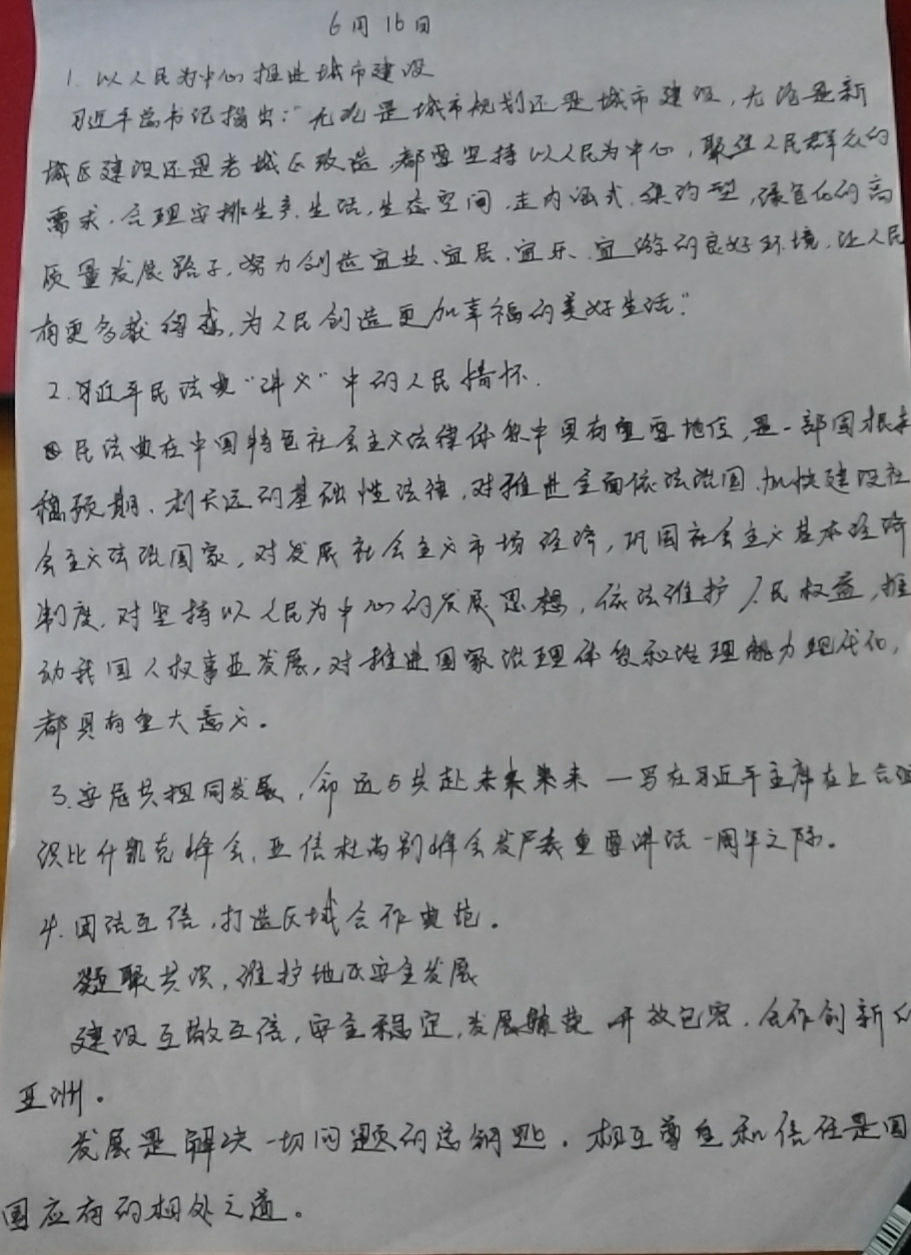 6月16日
1. 以人民为中心推进城市建设
习近平总书记指出："无论是城市规划还是城市建设，无论是新
城区建设还是老城区改造，都要坚持以人民为中心，聚焦人民群众的
需求，合理安排生产、生活、生态空间，走内涵式、集约型、绿色化的高
质量发展路子，努力创造宜业、宜居、宜乐、宜游的良好环境，让人民
有更多获得感，为人民创造更加幸福的美好生活。"
2. 习近平民法典"讲义"中的人民情怀.
民法典在中国特色社会主义法律体系中具有重要地位，是一部固根本
稳预期、利长远的基础性法律，对推进全面依法治国、加快建设社
会主义法治国家，对发展社会主义市场经济，巩固社会主义基本经济
制度，对坚持以人民为中心的发展思想，依法维护人民权益，推
动我国人权事业发展，对推进国家治理体系和治理能力现代化，
都具有重大意义。
3. 安危共担同发展，命运与共赴未来 — 写在习近平主席在上合组
织比什凯克峰会、亚信杜尚别峰会发表重要讲话一周年之际。
4. 团结互信，打造区域合作典范。
凝聚共识，维护地区安全发展
建设互敬互信，安全稳定，发展繁荣 开放包容，合作创新的
亚洲。
发展是解决一切问题的总钥匙，相互尊重和信任是国
国应有的相处之道。